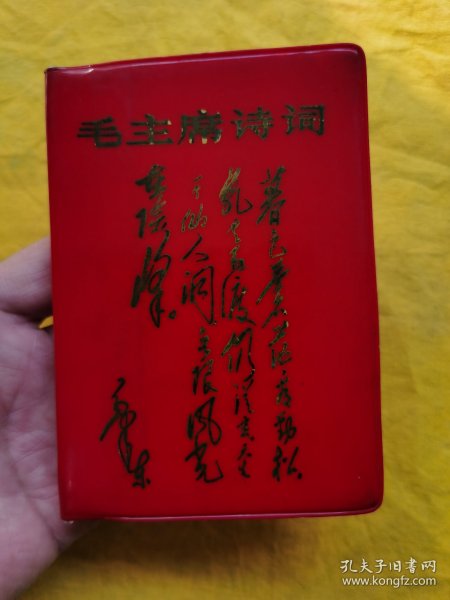 毛主席诗词
暮色苍茫看劲松
乱云飞渡仍从容天生
一个仙人洞无限风光
在险峰。
毛泽东
孔夫子旧书网
www.kongfz.com